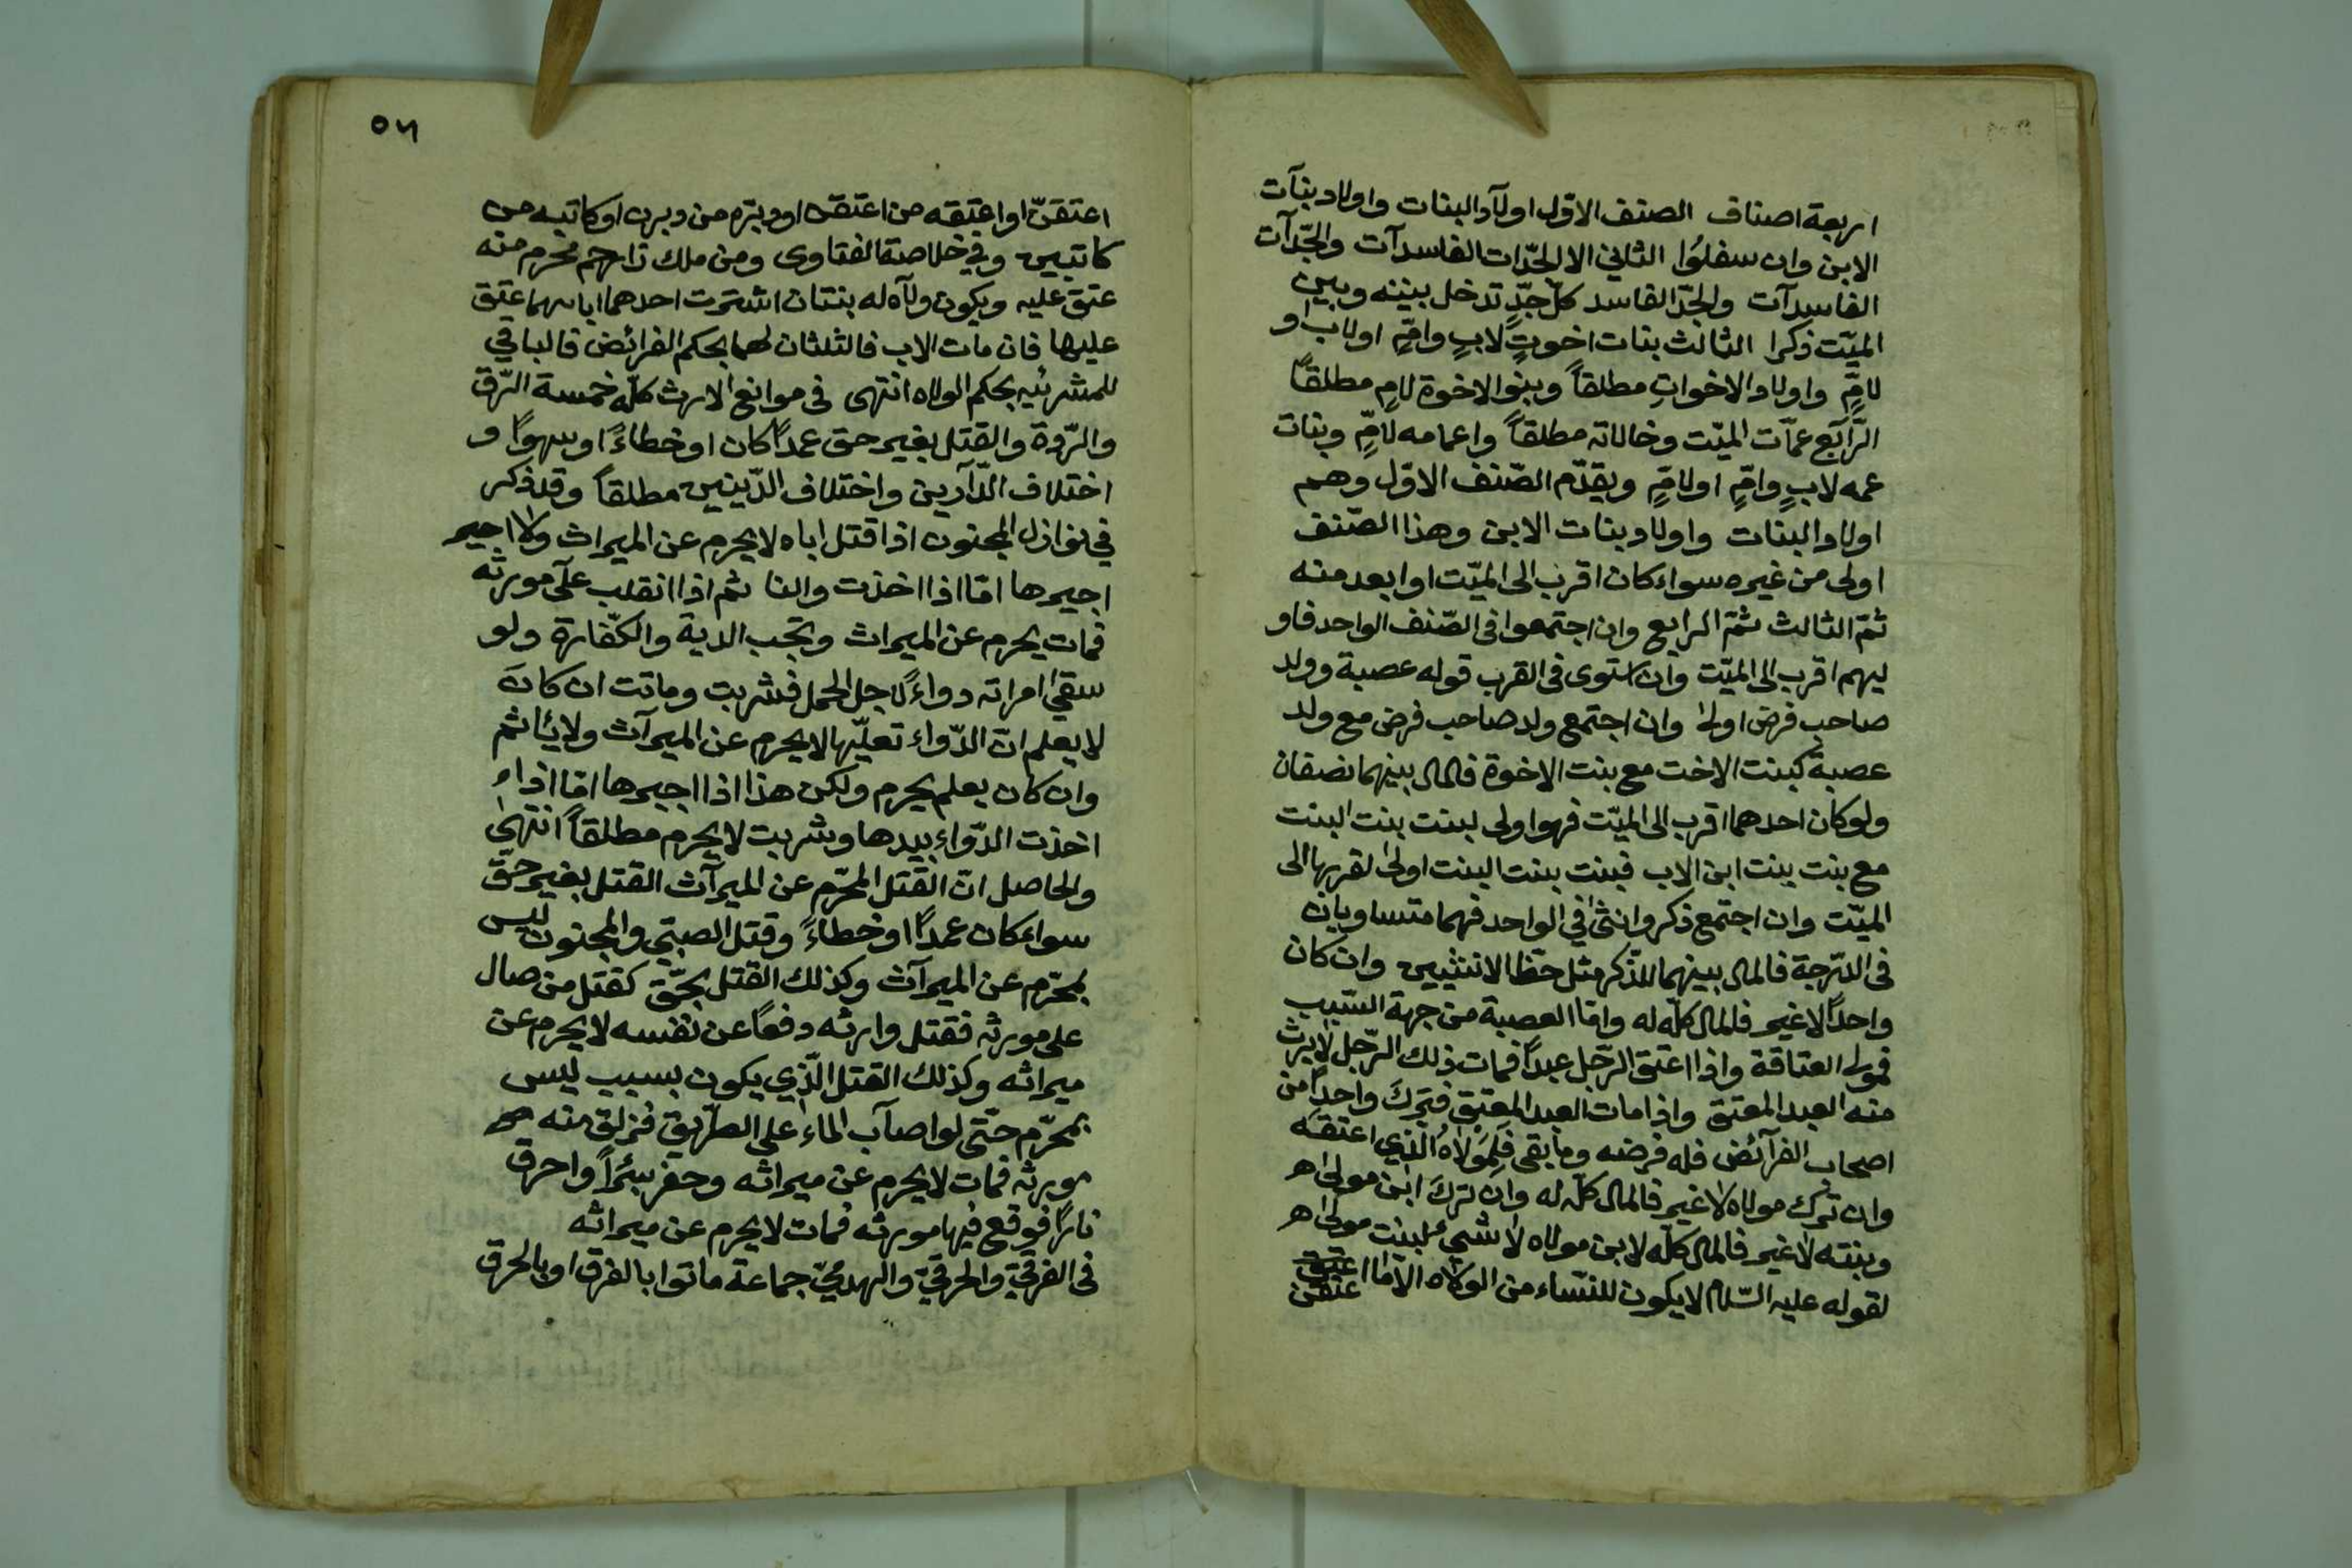 اربعة اصناف الصنف الاوّل اولآد البنات واولاد بنآت
الابن وان سفلوُا الثاني الا الجدّات الفاسدآت والجدّآت
الفاسدآت والجدّ الفاسد كلّ جدٍّ تدخل بيننه وبين
الميّت ذكرا الثالث بنات اخوتٍ لابٍ وامٍّ اولاب او
لامٍّ واولاد الاخواتِ مطلقاً وبنو الاخوة لامِ مطلقاً
الرّآبع عمّآت الميّت وخالاته مطلقاً واعمامه لامٍّ وبنات
عمه لابٍ وامٍّ اولامٍّ ويقدّم الصّنف الاوّل وهم
اولاد البنات واولاد بنات الابن وهذا الصّنف
اولى من غيره سواء كان اقرب الى الميّت اوابعد منه
ثمّ الثالث ثمّ الرابع وان اجتمعوا فى الصّنف الواحد فاو
ليهم اقرب الى الميّت وان استوى فى القرب قوله عصبة وولد
صاحب فرض اولى وان اجتمع ولد صاحب فرض مع ولد
عصبة كبنت الاخت مع بنت الاخوة فالمال بينهما نصفان
ولوكان احدهما اقرب الى الميّت فهو اولى لبنت بنت البنت
مع بنت بنت ابن الاب فبنت بنت البنت اولى لقربها الى
الميّت وان اجتمع ذكر وانثى في الواحد فهما متساويان
فى الدّرجة فالمال بينهما للذّكر مثل حظّ الانثيين وان كان
واحداً لاغير فالمال كلّه له وامّا العصبة من جهة السّبب
فمولى العتاقة واذا اعتق الرّجل عبداً فمات ذلك الرّجل لايرث
منه العبد المعتق واذا مات العبد المعتق فترك واحداً من
اصحاب الفرآئض فله فرضه وما بقى فلمولاه الّذي اعتقه
وان ترك مولاه لاغير فالمال كلّه له وان ترك ابن مولاه
وبنته لاغير فالمال كلّه لابن مولاه لا شيء لبنت مولاه
لقوله عليه السّلام لايكون للنّساء من الولاء الّا ما اعتق
عتقن
٥٦
اعتقنّ اواعتقه من اعتقن اودبّره من دبرن اوكاتبه من
كاتبين وفي خلاصة الفتاوى ومن ملك ذا رحم محرم منه
عتق عليه ويكون ولآه له بنتان اشترت احدهما اباهما عتق
عليها فان مات الاب فالثلثان لهما بحكم الفرائض فالباقي
للمشرئيه بحكم الولاه انتهى فى موانع الارث كلّه خمسة الرّق
والرّدة والقتل بغير حق عمداً كان او خطاءً اوسهواً و
اختلاف الدّآرين واختلاف الدّينين مطلقاً وقد ذكر
في نوازل المجنون اذا قتل اباه لايحرم عن الميراث ولا اجير
اجيرها امّا اذا اخذت والنا ثم اذا انقلب علىّ مورثه
فمات يحرم عن الميراث وتجب الدية والكفّارة ولو
سقي امراته دواءً لاجل الحمل فشربت وماتت ان كان
لايعلم انّ الدّواء تعلّيها لايحرم عن الميرآث ولايئاثم
وان كان يعلم يحرم ولكن هذا اذا اجيرها امّا اذا
اخذت الدّواء بيدها وشربت لايحرم مطلقاً انتهى
والحاصل انّ القتل المحرّم عن الميرآث القتل بغير حقّ
سواءكان عمداً اوخطاءً وقتل الصبّي والمجنون ليس
بمحرّم عن الميرآث وكذلك القتل بحقّ كقتل من صال
على مورثه فقتل وارثه دفعاً عن نفسه لايحرم عن
ميراثه وكذلك القتل الّذي يكون بسبب ليس
بمحرّم حتّى لواصآب الماء على الطّريق فزلق منه
مورثه فمات لايحرم عن ميراثه وحفر بئراً واحرق
ناراً فوقع فيها مورثه فمات لايحرم عن ميراثه
فى الغرقيّ والحرقيّ والهدميّ جماعة ماتوا بالغرق اوبالحرق